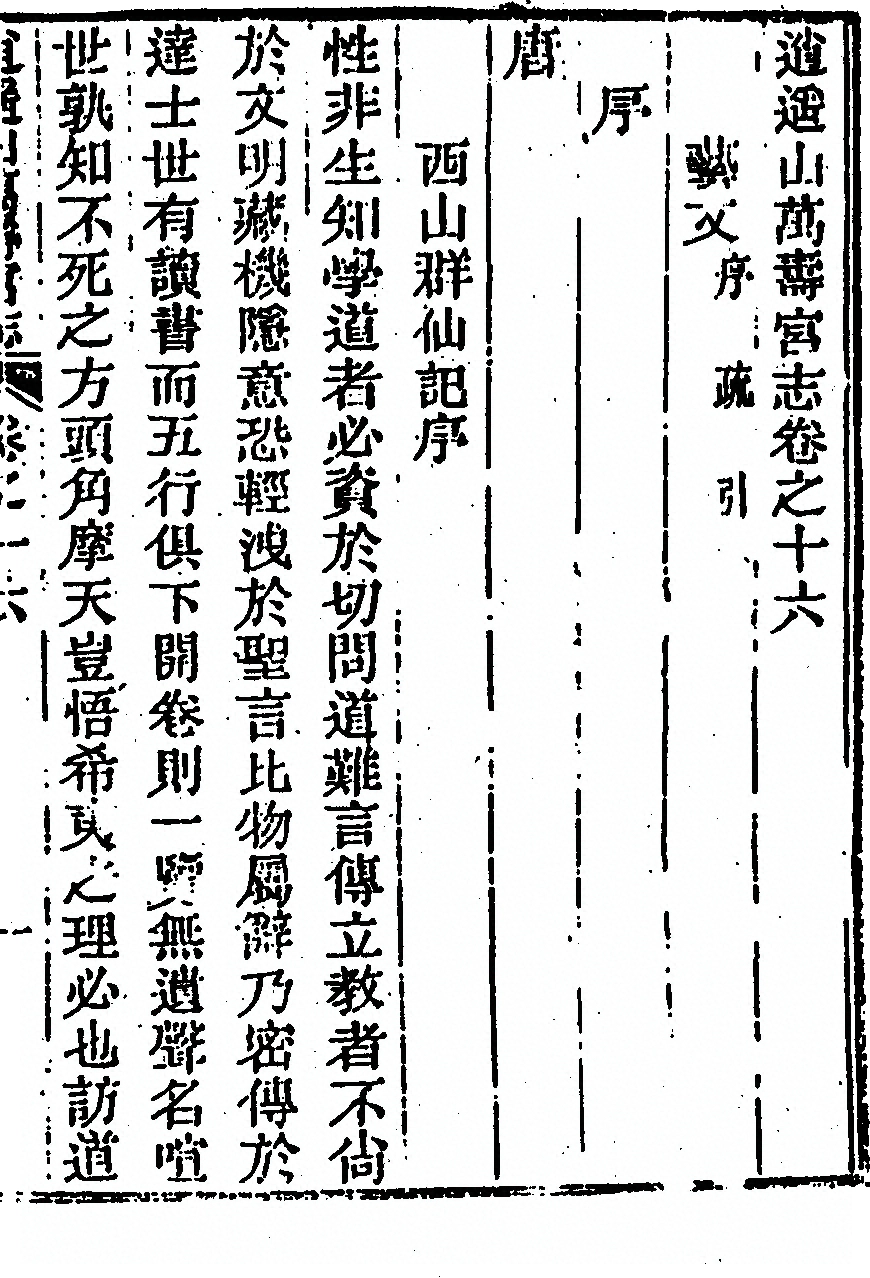 逍遥山萬壽宮志卷之十六
藝文 序 疏 引
序
唐
西山群仙記序
性非生知學道者必資於切問道難言傳立教者不尙
於文明藏機隱意恐輕洩於聖言比物屬辭乃密傳於
達士世有讀書而五行俱下開卷則一覽無遺聲名喧
世孰知不死之方頭角摩天豈悟希夷之理必也訪道